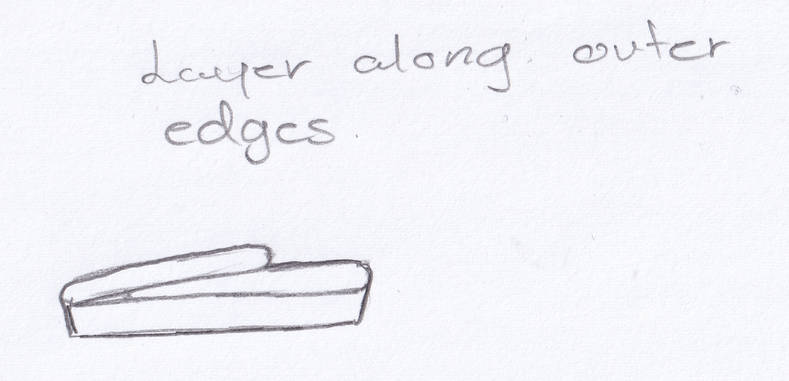 Layer along outer
edges.